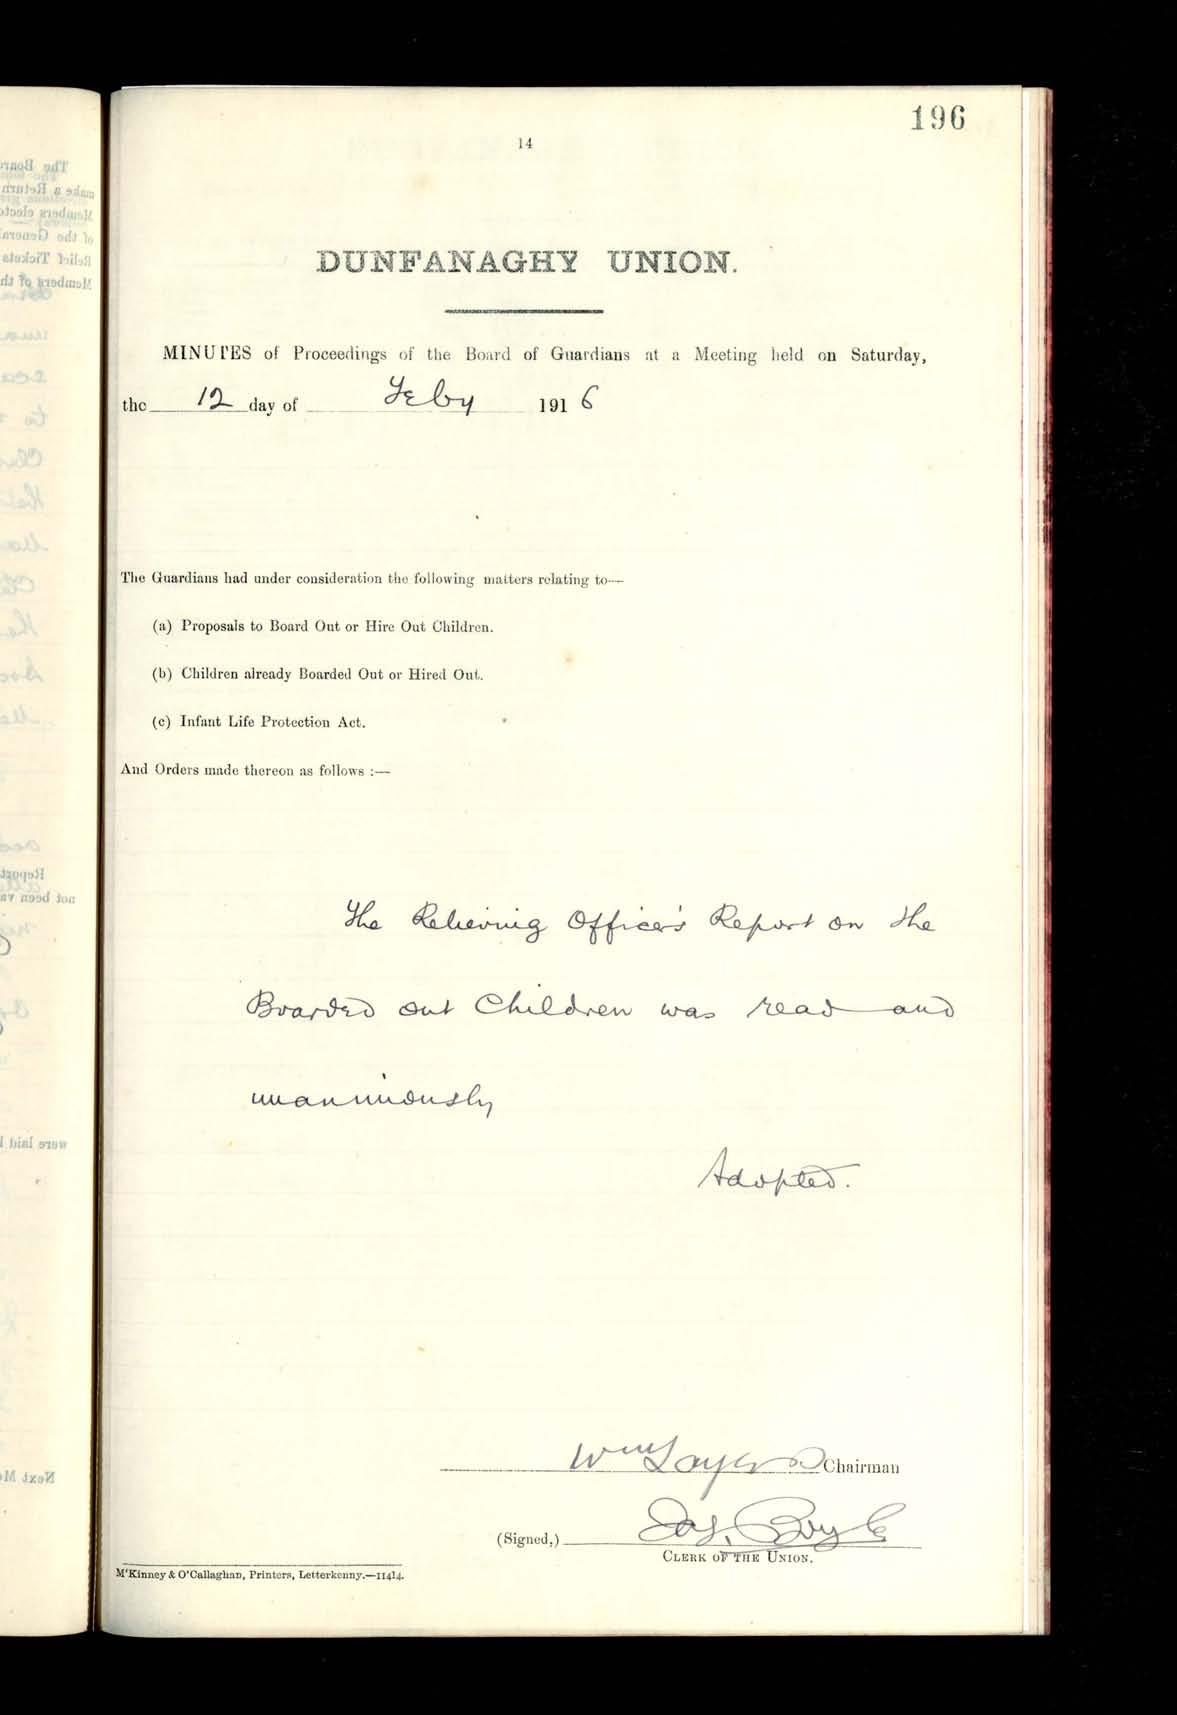 196
14
DUNFANAGHY UNION.
MINUTES of Proceedings of the Board of Guardians at a Meeting held on Saturday,
the 12 day of Feby 1916
The Guardians had under consideration the following matters relating to—
(a) Proposals to Board Out or Hire Out Children.
(b) Children already Boarded Out or Hired Out.
(c) Infant Life Protection Act.
And Orders made thereon as follows :—
The Relieving Officer's Report on the
Boarded out Children was read and
unanimously
Adopted.
Wm Chairman
(Signed,) Jas. Boyle
CLERK OF THE UNION.
M'Kinney & O'Callaghan, Printers, Letterkenny.—11414.